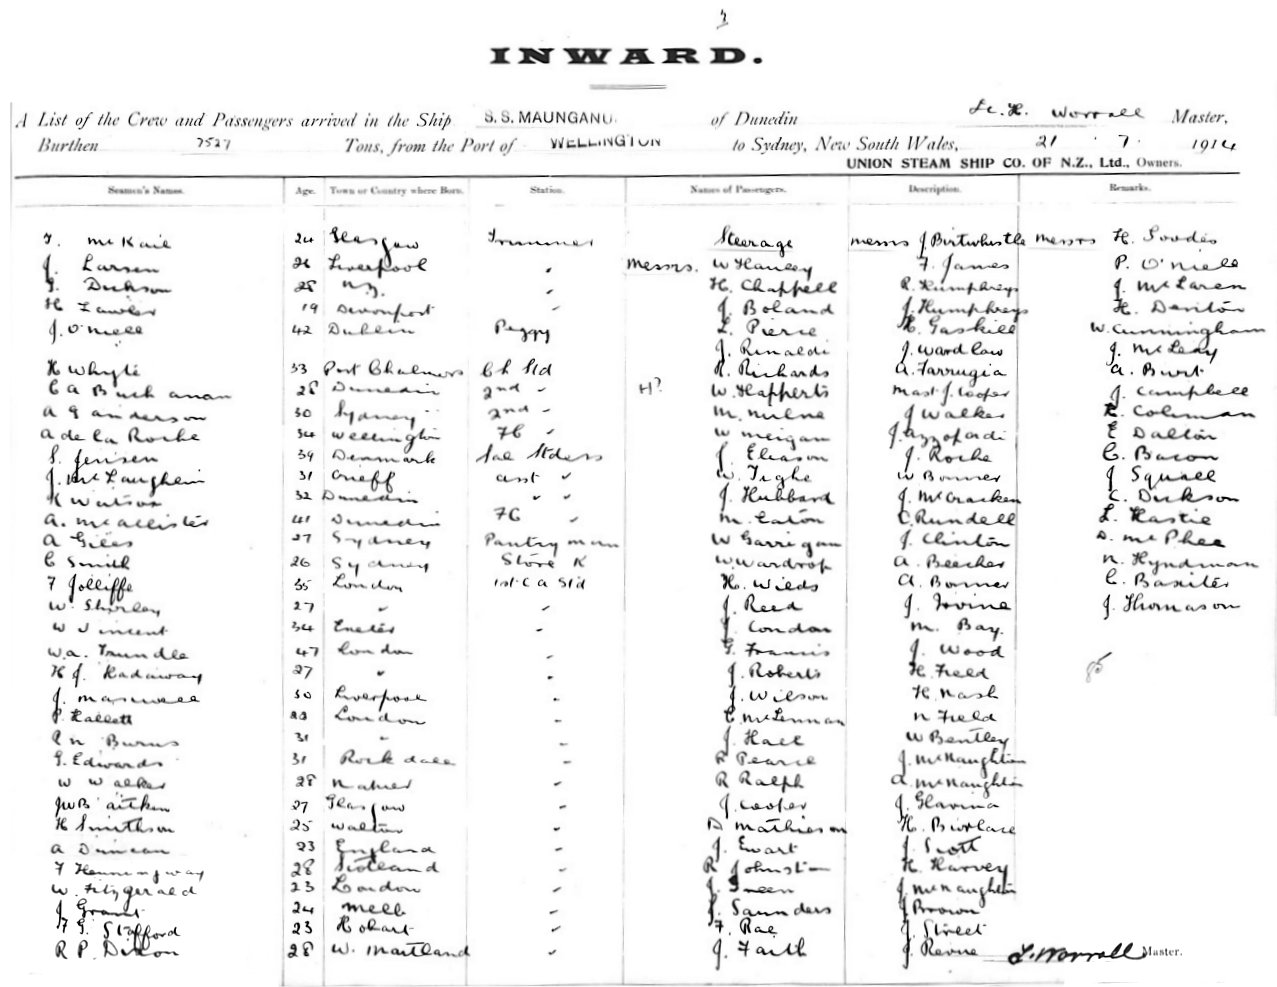 INWARD.
A List of the Crew and Passengers arrived in the Ship S.S. MAUNGANUI. of Dunedin H. Worrall Master,
Burthen 7527 Tons, from the Port of WELLINGTON to Sydney, New South Wales, 21 7. 1914
UNION STEAM SHIP CO. OF N.Z., Ltd., Owners.
Seamen's Names. Age. Town or Country where Born. Station. Names of Passengers. Description. Remarks.
McKail 24 Glasgow Trimmer Steerage messrs J Birtwhistle messrs H. Soodes
J. Larsen 26 Liverpool " messrs. W Hanley F. James P. O'Niell
Dickson 28 N.Z. " H. Chappell R. Humphreys J. McLaren
H Lawler 19 Devonport " J. Boland J. Humphreys H. Denton
J. O'Niell 42 Dublin Peggy L. Pierce H. Gaskill W. Cunningham
J. Rinaldi J. Wardlaw J. McLeay
H Whyte 33 Port Chalmers Ch Std R. Richards A. Farrugia A. Burt
C A Buchanan 28 Dunedin 2nd " W. Hapferts Mast J. Cooper J. Campbell
A G Anderson 30 Sydney 2nd " M. Milne J Walker R. Coleman
A de la Roche 34 Wellington FC " W Meigan J. Azzopardi E Dalton
S. Jensen 39 Denmark Sal Stders J. Eliason J. Roche C. Bacon
J. McLaughlin 31 Crieff asst " W. Tighe W Bonner J Squall
K Watson 32 Dunedin " " J. Hubbard J. McCracken C. Dickson
A. McAllister 41 Dunedin FC " M. Eaton C Rundell L. Hastie
A Giles 27 Sydney Pantryman W Garrigan J. Clinton D. McPhee
C Smith 26 Sydney Store K W Wardrop A. Beecher N. Hyndman
F Jolliffe 35 London 1st C a Std H. Wilds A. Bonner C. Baxter
W. Shirley 27 " " J. Reed J. Irvine J. Thomason
W Vincent 34 Exeter " J. London M. Bay.
W.A. Trundle 47 London " G. Francis J. Wood
H J. Radaway 27 " " J. Roberts H. Field
J. Maxwell 30 Liverpool " J. Wilson H. Nash
P. Hallett 23 London " C. McLennan N Field
R N Burns 31 " " J. Hall W Bentley
G. Edwards 31 Rockdale " R Pearce J. McNaughton
W Walker 28 Napier " R Ralph A. McNaughton
JWB Aitken 27 Glasgow " J. Cooper J. Glavina
H Smithson 25 Walton " D Mathieson H. Biorlace
A Duncan 23 England " J. Ewart J. Scott
F Hemmingway 28 Scotland " R Johnston H. Harvey
W. Fitzgerald 23 London " J. McNaughton
J Grant 24 Melb " J. Saunders J Brown
F G. Stafford 23 Hobart " F. Rae J. Street
R P. Dixon 28 W. Maitland " J. Faith J. Revne L. Worrall Master.